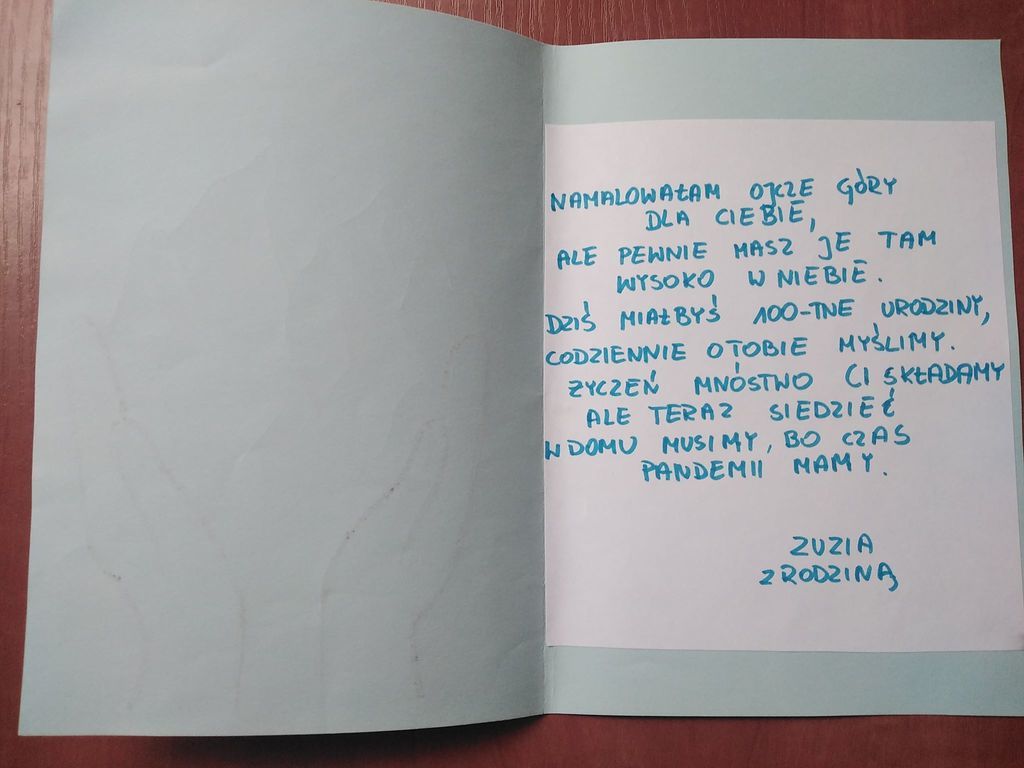 NAMALOWAŁAM OJCZE GÓRY
DLA CIEBIE,
ALE PEWNIE MASZ JE TAM
WYSOKO W NIEBIE.
DZIŚ MIAŁBYŚ 100-TNE URODZINY,
CODZIENNIE O TOBIE MYŚLIMY.
ŻYCZEŃ MNÓSTWO CI SKŁADAMY
ALE TERAZ SIEDZIEĆ
W DOMU MUSIMY, BO CZAS
PANDEMII MAMY.
ZUZIA
Z RODZINĄ